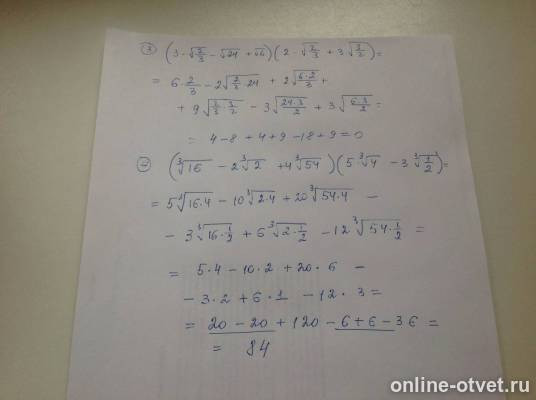 3) (3·√(2/3) − √24 + √6)(2·√(2/3) + 3√(3/2)) =
= 6·2/3 − 2√(2/3·24) + 2√(6·2/3) +
+ 9√(2/3·3/2) − 3√(24·3/2) + 3√(6·3/2) =
= 4 − 8 + 4 + 9 − 18 + 9 = 0
(∛16 − 2∛2 + 4∛54)(5∛4 − 3∛(1/2)) =
= 5∛(16·4) − 10∛(2·4) + 20∛(54·4) −
− 3∛(16·1/2) + 6∛(2·1/2) − 12∛(54·1/2) =
= 5·4 − 10·2 + 20·6 −
− 3·2 + 6·1 − 12·3 =
= 20 − 20 + 120 − 6 + 6 − 36 =
= 84
online-otvet.ru